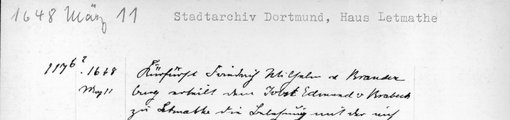 1648 März 11 Stadtarchiv Dortmund, Haus Letmathe
1176² . 1648 Kurfürst Friedrich Wilhelm v Branden
März 11 burg erteilt dem Jobst Edmund v Brabeck
zu Letmathe die Belehnung mit der